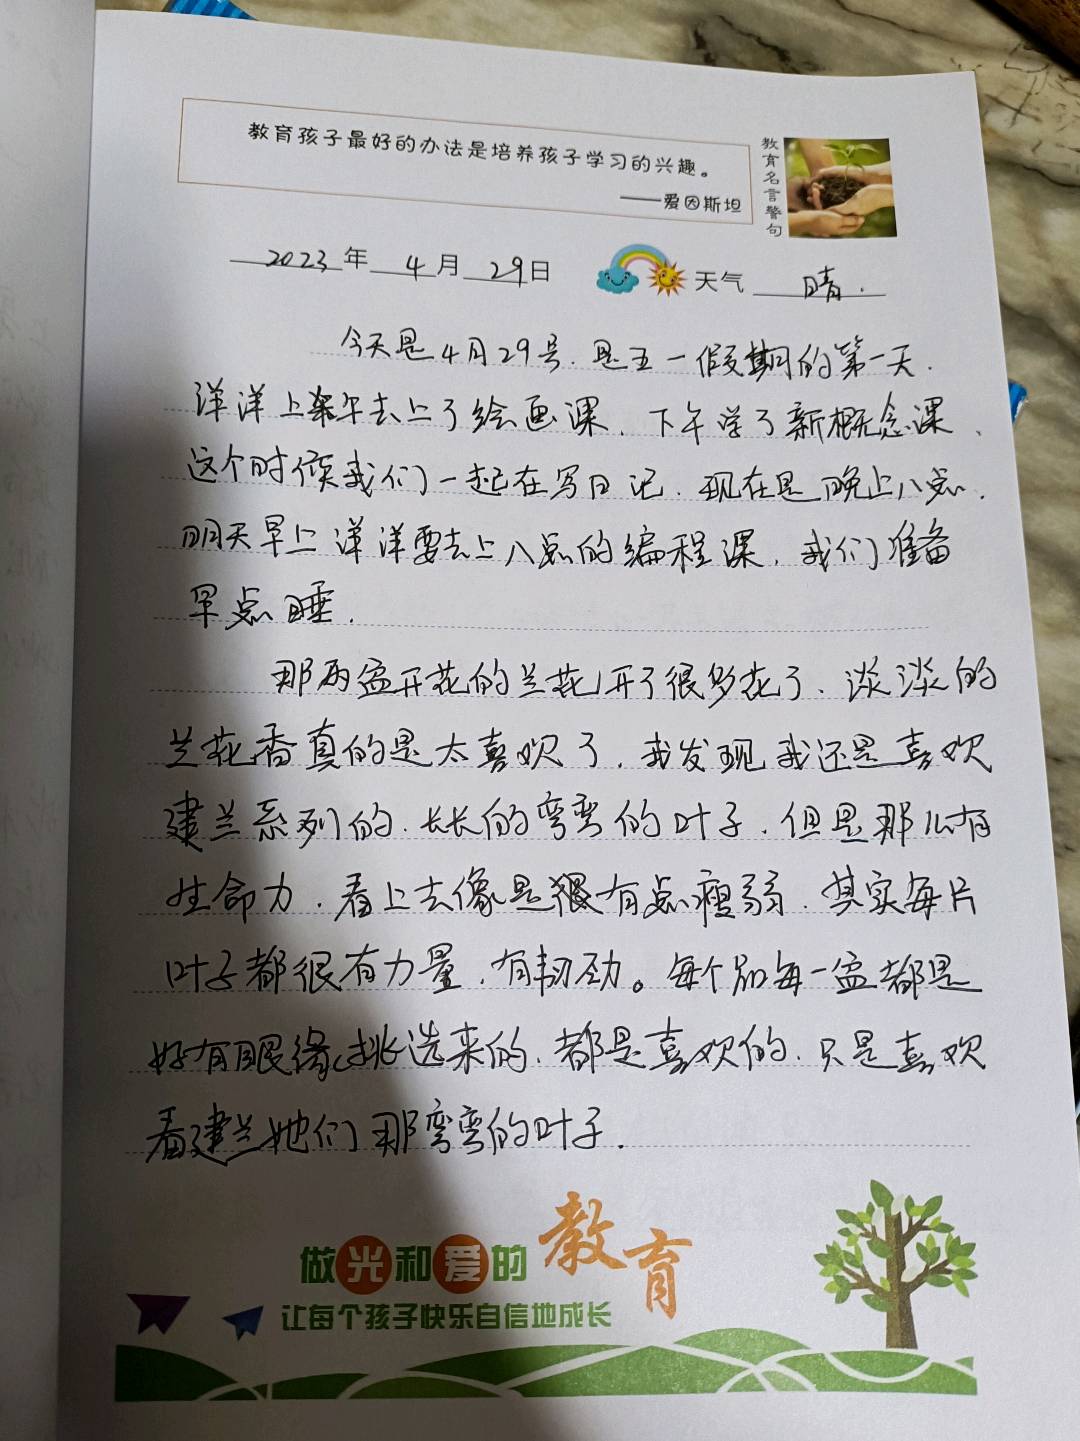 教育孩子最好的办法是培养孩子学习的兴趣。
——爱因斯坦
教育名言警句
2023年4月29日 天气 晴.
今天是4月29号.是五一假期的第一天.
洋洋上午去上了绘画课.下午学了新概念课、
这个时候我们一起在写日记.现在是晚上八点.
明天早上洋洋要去上八点的编程课.我们准备
早点睡.
那两盆开花的兰花开了很多花了、淡淡的
兰花香真的是太喜欢了.我发现我还是喜欢
建兰系列的.长长的弯弯的叶子.但是那么有
生命力.看上去像是很有点瘦弱.其实每片
叶子都很有力量.有韧劲。每个每一盆都是
好有眼缘挑选来的.都是喜欢的.只是喜欢
看建兰她们那弯弯的叶子.
做光和爱的教育
让每个孩子快乐自信地成长